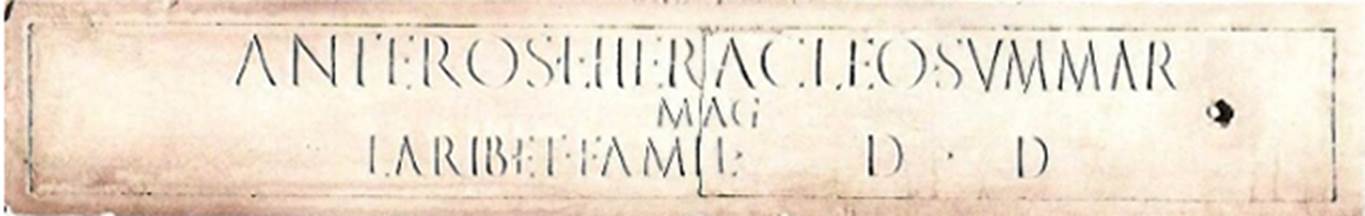 ANTEROS·L·HERACLEO·SVMMAR
MAG
LARIB·ET·FAMIL· D · D